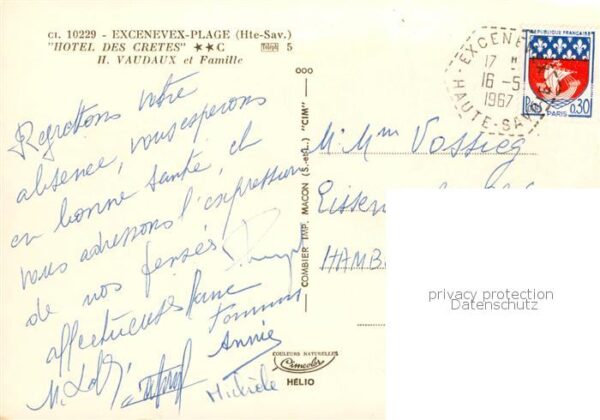 CI. 10229 - EXCENEVEX-PLAGE (Hte-Sav.)
"HOTEL DES CRETES" ★★C Téléph 5
H. VAUDAUX et Famille
Regrettons votre
absence, vous esperons
en bonne santé, et
vous adressons l'expression
de nos pensées
affectueuses
Annie
Michèle
COMBIER IMP. MACON (S.-et-L.) "CIM"
COULEURS NATURELLES
Cimcolor
HÉLIO
EXCENEVEX
17 H
16-5
1967
HAUTE-SAVOIE
REPUBLIQUE FRANÇAISE
0,30
PARIS
M. Mme Vossieg
HAMB
privacy protection
Datenschutz